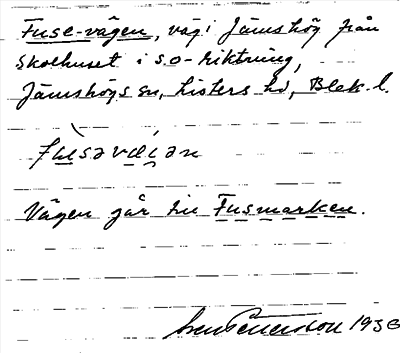 Fuse-vägen, väg i Jämshög från
skolhuset i s.o-riktning,
Jämshögs sn, Listers hd, Blek. l.
Vägen går till Fusmarken.
1930